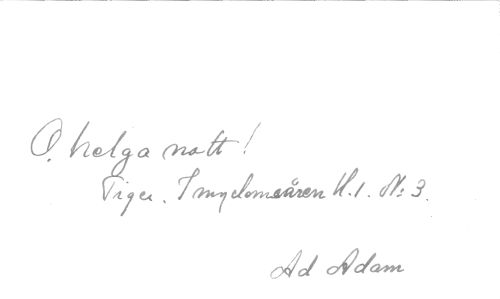 O, helga natt!
Tiger. H. 1. No 3.
Ad Adam